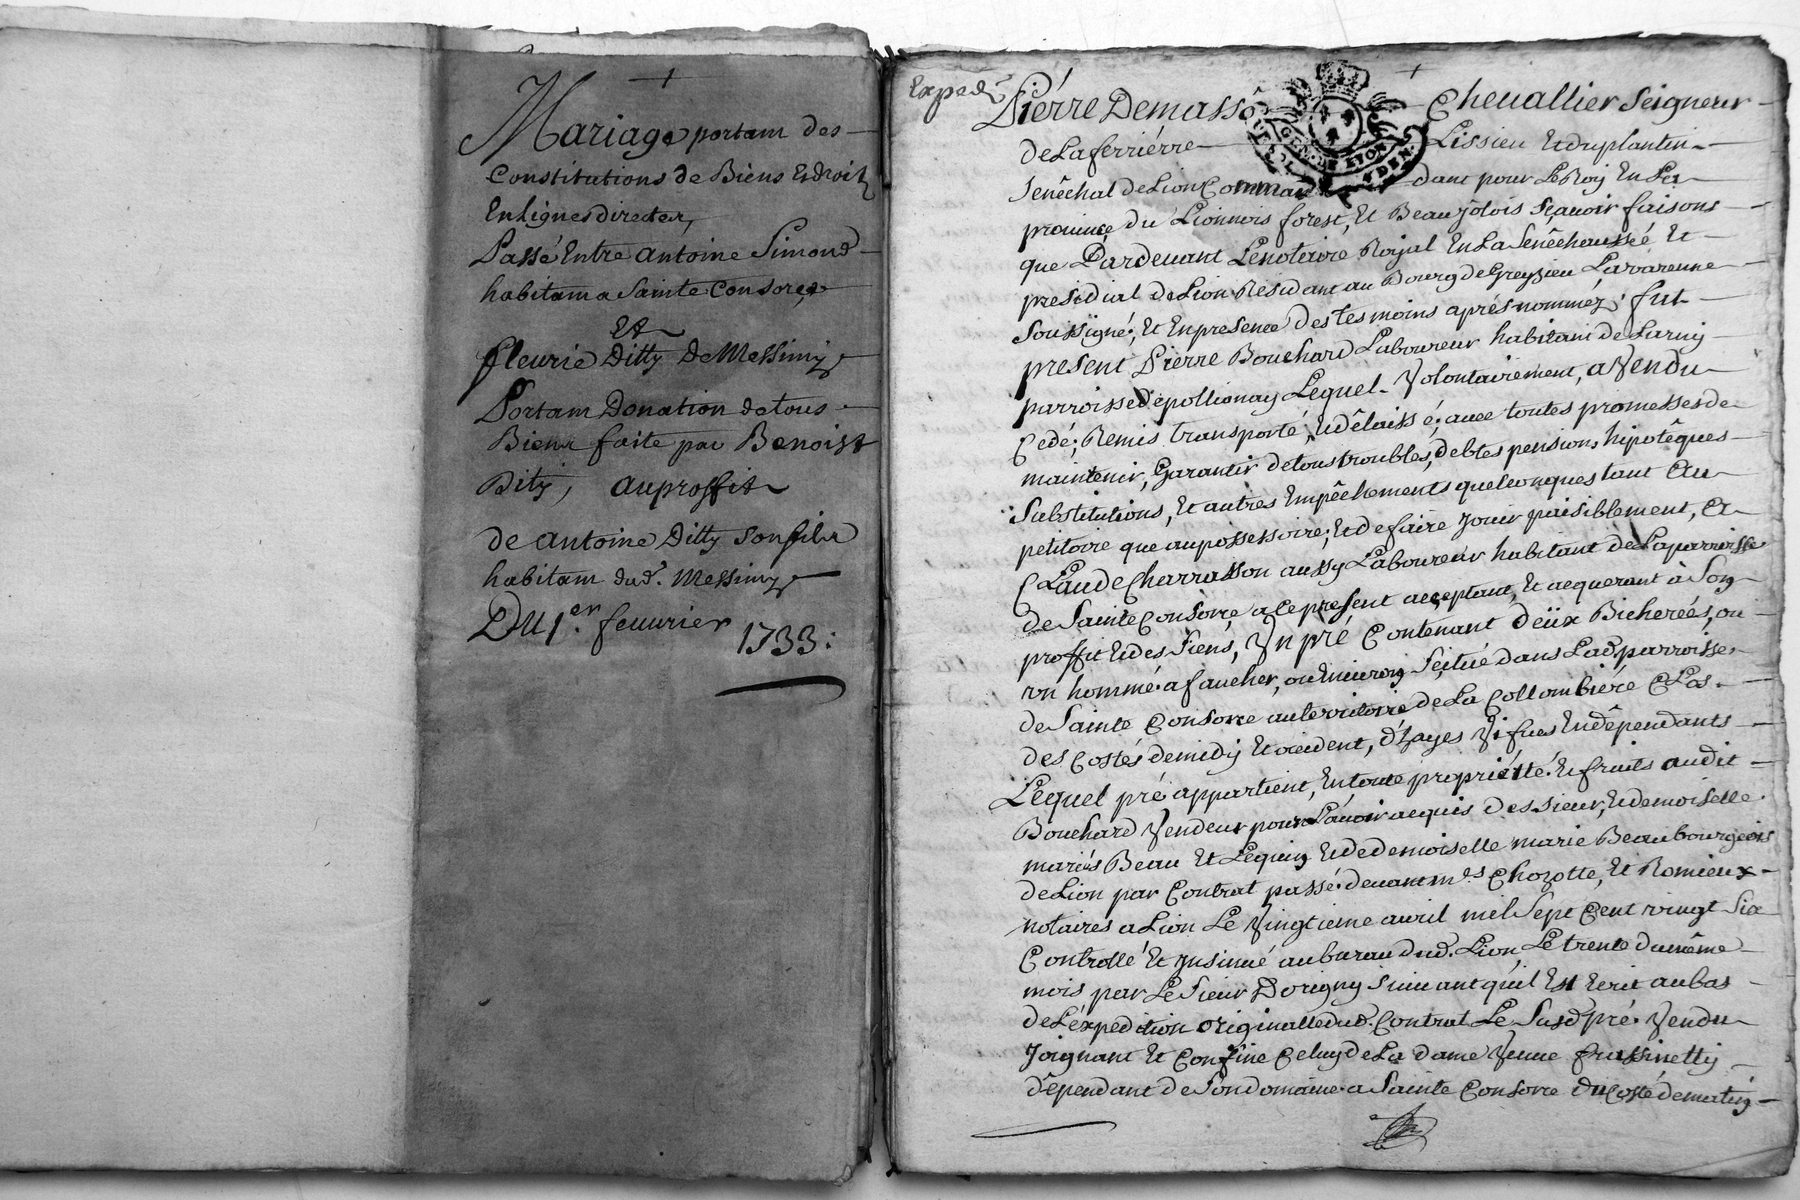 Mariage portant des
Constitutions de Biens Et droits
En Lignes directes,
Passé Entre antoine Simond
habitant a Sainte Consorce
Et
fleurie Ditty de Messimy
Portant Donation de tous
Biens faite par Benoist
Dity, au proffit
de antoine Ditty son fils
habitant dud. Messimy
Du 1er. feuurier 1733:
Exped.
Pierre Demasso Cheuallier Seigneur
de La ferriérre Lissieu Et du plantin
Senêchal de Lion Commandant pour Le Roy En La
prouince du Lionnois forest, Et Beaujolois Sçauoir faisons
que Pardeuant Le notaire Royal En La Senêchaussée Et
presidial de Lion Residant au Bourg de Greyzieu Lavarenne
Soussigné; Et En presence des tesmoins aprés nommez, fut
present Pierre Bouchard Laboureur habitant de Larny
parroisse de pollionay Lequel Volontairement, a Vendu
Cedé; Remis transporté; Et dêlaissé; auec toutes promesses de
maintenir, Garantir de tous troubles, debtes pensions, hipotêques
Substitutions, Et autres Empêchements quelconques tant Au
petitoire que au possessoire; Et de faire Jouir paisiblement, A
Claude Charrasson aussy Laboureur habitant de La parroisse
de Sainte Consorce a Ce present acceptant, Et acquerant à Son
proffit Et des Siens, Vn pré Contenant deüx Bicherées, ou
vn homme a faucher, ou Enuiron Scitué dans Lad. parroisse
de Sainte Consorce au territoire de La Collombiére Clos
des Costés de midy Et occident, d'hayes Vifues En dêpendants
Lequel pré appartient, En toute propriétté Et fruits audit
Bouchard Vendeur pour L'auoir acquis des sieur, Et demoiselle
mariés Beau Et Lequin Et de demoiselle marie Beau bourgeois
de Lion par Contrat passé deuant mes Chozotte, Et Romieux
notaires a Lion Le Vingtieme auril mil Sept Cent vingt Six
Controllé Et Insinué au burau dud. Lion, Le trente du même
mois par Le Sieur Dorigny Suiuant qu'il Est Ecrit au bas
de L'expedition originalle dud. Contrat Le Susd. pré Vendu
Joignant Et Confine Celuy de La dame Veuue frassinetty
dêpendant de Son domaine a Sainte Consorce du Costé de matin